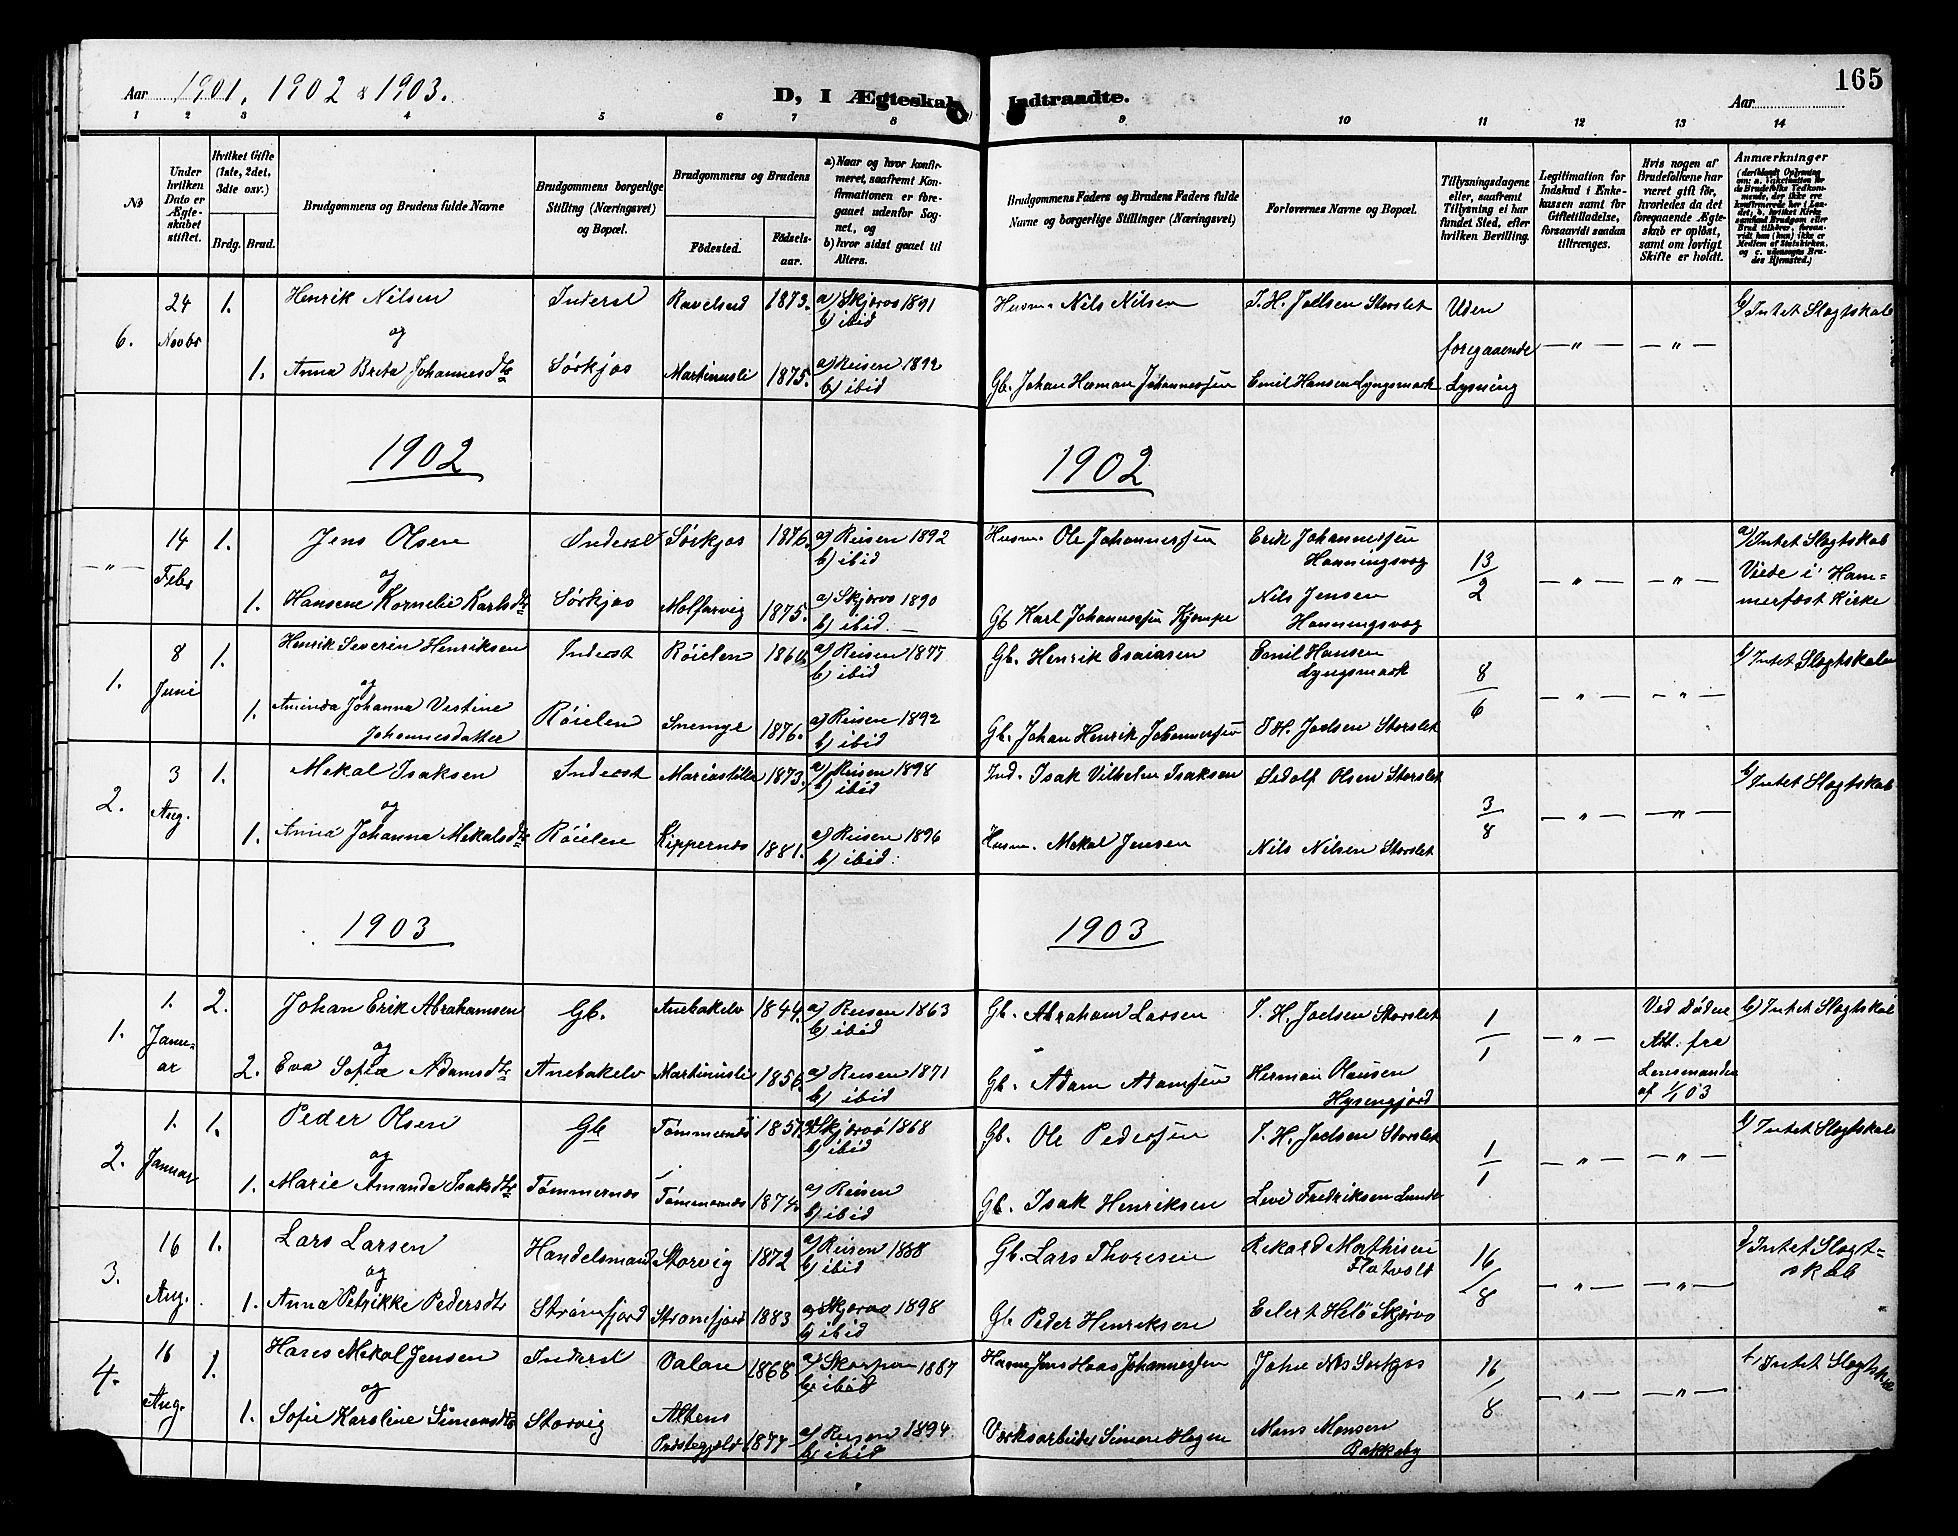 Aar 1901, 1902 & 1903.
D, I Ægteskab
Indtraadte.
165
Aar
1 2 3 4 5 6 7 8 9 10 11 12 13 14
No
Under hvilken Dato er Ægteskabet stiftet.
Hvilket Gifte (1ste, 2det, 3die osv.)
Brdg. Brud.
Brudgommens og Brudens fulde Navne
Brudgommens borgerlige Stilling (Næringsvei) og Bopæl.
Brudgommens og Brudens
Födested.
Födselsaar.
a) Naar og hvor konfirmeret, saafremt Konfirmationen er foregaaet udenfor Sognet, og
b) hvor sidst gaaet til Alters.
Brudgommens Faders og Brudens Faders fulde Navne og borgerlige Stillinger (Næringsvei)
Forlovernes Navne og Bopæl.
Tillysningsdagene eller, saafremt Tillysning ei har fundet Sted, efter hvilken Bevilling.
Legitimation for Indskud i Enkekassen samt for Giftetilladelse, forsaavidt saadan tiltrænges.
Hvis nogen af Brudefolkene har været gift för, hvorledes da det foregaaende Ægteskab er oplöst, samt om lovligt Skifte er holdt.
Anmærkninger
6. 24 Novbr 1. Henrik Nilsen Inderst 1873. a) Skjervø 1891 b) ibid Husm. Nils Nilsen J. H. Joelsen Storslet Uden b) Intet Slægtskab
og foregaaende — " — — " —
1. Anna Berta Johannesdtr Sørkjos Martinusli 1875. a) Reisen 1892 b) ibid Gb. Johan Herman Johannessen Emil Hansen Lyngsmark Lysning
1902
1902
— " — 14 Febr 1. Jens Olsen Inderst Sørkjos 1876. a) Reisen 1892 b) ibid Husm. Ole Johannessen Erik Johannessen Honningsvog 13/2 — " — — " — a) Intet Slægtskab
og Viede i Hammerfest Kirke
1. Hansene Kornelie Karlsdtr Sørkjos 1875. a) Skjervø 1890 b) ibid. Gb Karl Johannessen Kjempe Nils Jensen Honningsvog
1. 8 Juni 1. Henrik Severin Henriksen Inderst Røielen a) Reisen 1877 b) ibid Gb. Henrik Esaiasen Emil Hansen Lyngsmark 8/6 — " — — " — b) Intet Slægtskab
og
1. Aminda Johanna Vestine Johannesdatter Røielen Snemyr 1876. a) Reisen 1892 b) ibid Gb. Johan Henrik Johannessen J. H. Joelsen Storslet
2. 3 Aug. 1. Mekal Isaksen Inderst 1873. a) Reisen 1898 b) ibid Ind. Isak Vilhelm Isaksen Sedolf Olsen Storslet 3/8 — " — — " — b) Intet Slægtskab
og
1. Anna Johanna Mekalsdtr Røielen Kippernes 1881. a) Reisen 1896 b) ibid. Husm. Mekal Jensen Nils Nilsen Storslet
1903
1903
1. 1. Januar 2. Johan Erik Abrahamsen Gb. Anebakelv 1844. a) Reisen 1863 b) ibid Gb. Abraham Larsen J. H. Joelsen Storslet 1/1 — " — Ved Döden b) Intet Slægtskab
og Att. fra
2. Eva Sofie Adamsdtr Anebakelv Martinusli 1856. a) Reisen 1871 b) ibid Gb. Adam Adamsen Herman Olausen Lensmanden af 1/1 03
2. 1. Januar 1. Peder Olsen Gb Tømmernes 1857. a) Skjervø 1868 b) ibid Gb. Ole Pedersen J. H. Joelsen Storslet 1/1 — " — — " — b) Intet Slægtskab
og
1. Marie Amanda Isaksdtr Tømmernes Tømmernes 1874. a) Reisen b) ibid Gb. Isak Henriksen Levi Fredriksen Lunde
3. 16 Aug. 1. Lars Larsen Handelsmand Storvig 1872 a) Reisen 1888 b) ibid Gb. Lars Thoresen Rikard Mathisen Flatvold 16/8 — " — — " — b) Intet Slægtskab
og
1. Anna Petrikke Pedersdtr Strömfjord Strömfjord 1883 a) Skjervø 1898 b) ibid Gb. Peder Henriksen Eilert Heiö Skjervø
4. 16 Aug. 1. Hans Mekal Jensen Inderst Valan 1868. 1887 b) ibid Husm. Jens Haas Johannessen 16/8 — " — — " — b) Intet Slægtskab
og
1. Sofie Karoline Simonsdtr Storvig Altens Præstegjeld 1877 a) Reisen 1894 b) ibid Værksarbeider Simon Hagen Mons Monsen Bakkeby